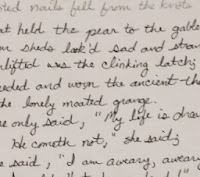 sted nails fell from the knots
at held the pear to the gable
n sheds look'd sad and stran
nlifted was the clinking latch;
eeded and worn the ancient tha
he lonely moated grange.
he only said, "My life is drea
He cometh not," she said;
e said, "I am aweary, aweary